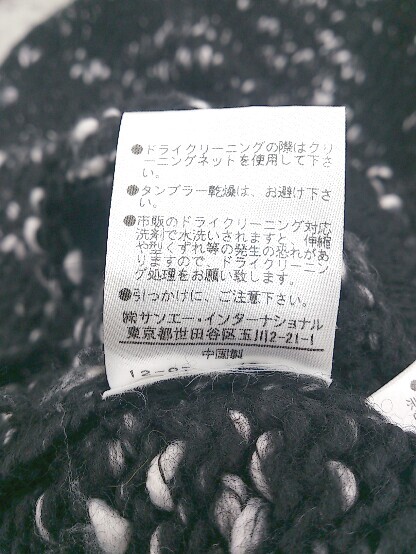 ●ドライクリーニングの際はクリ
ーニングネットを使用して下さ
い。
●タンブラー乾燥は、お避け下さ
い。
●市販のドライクリーニング対応
洗剤で水洗いされますと、伸縮
や型くずれ等の発生の恐れがあ
りますので、ドライクリーニン
グ処理をお願い致します。
●引っかけに、ご注意下さい。
㈱サンエー・インターナショナル
東京都世田谷区玉川2-21-1
中国製